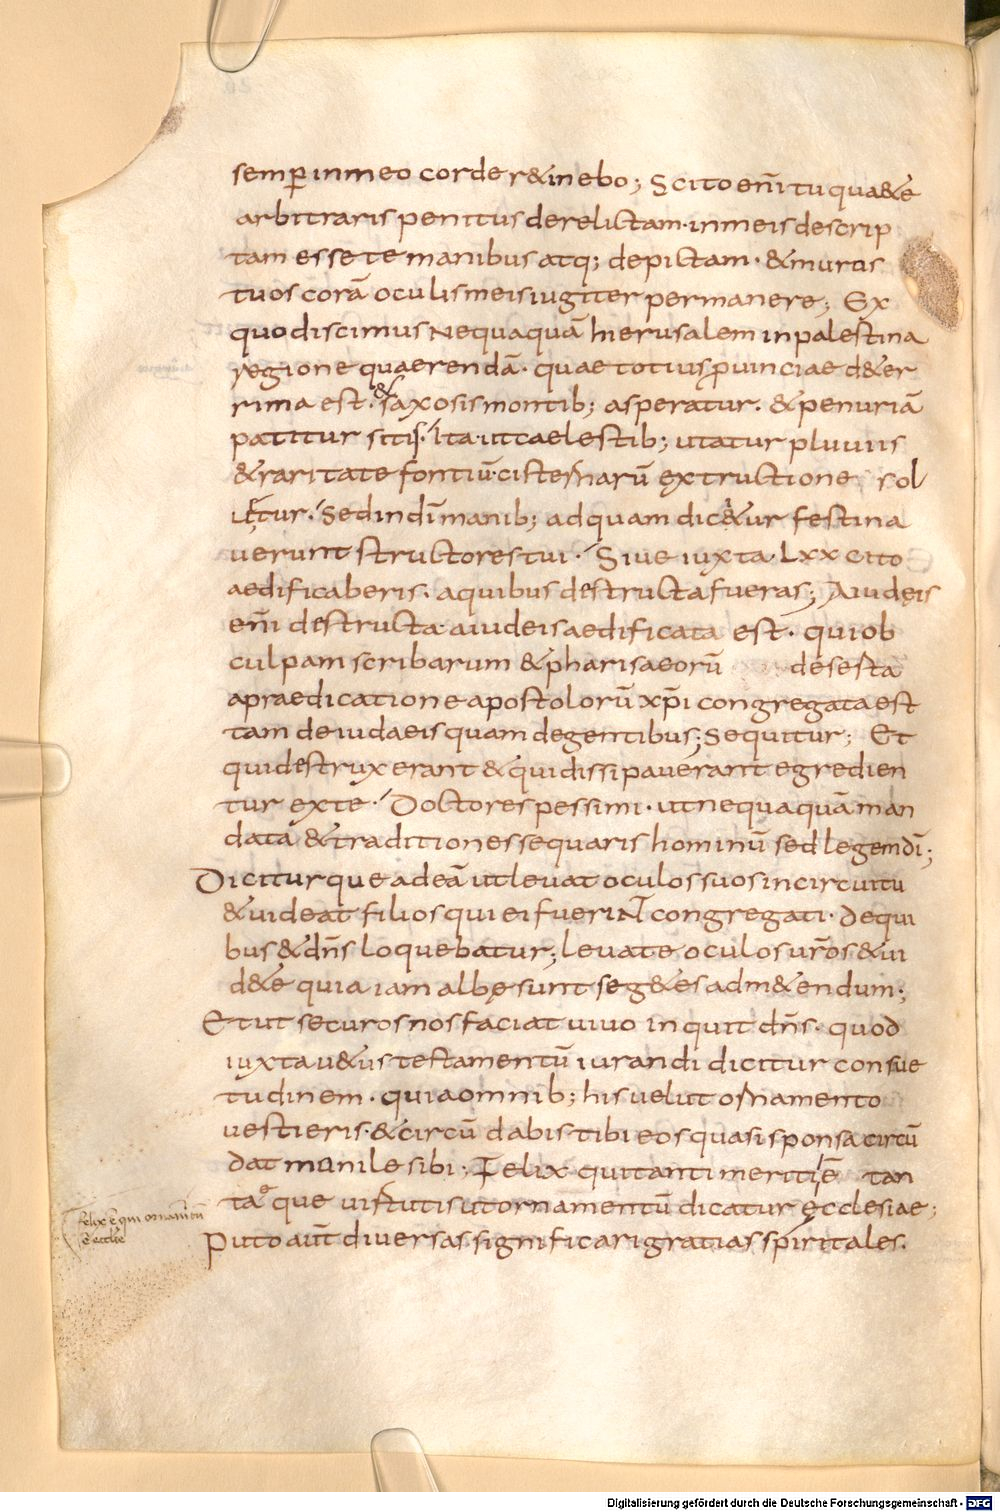 semp̱ inmeo corde r&inebo; Scito enī tu qua&e
arbitraris penitus derelictam· inmeis descrip
tam esse te manibus atq; depictam· & muros
tuos corā oculis meis iugiter permanere; Ex
quo discimus nequaquā hierusalem in palestina
regione quaerendā· quae totius ꝓuinciae d&er
rima est· & saxosis montib; asperatur· & penuriā
patitur sitis· Ita ut caelestib; utatur pluuiis
& raritate fontiū· cisternarū extructione sol
u&ur· Sed indm̄ manib; ad quam dic&ur festina
uerunt structores tui· Siue iuxta LXX cito
aedificaberis· aquibus destructa fueras; A iudęis
enī destructa· a iudeis aedificata est· qui ob
culpam scribarum & pharisaeorū desesta
apraedicatione apostolorū xp̄i congregata est
tam de iudaeis quam de gentibus; Sequitur; Et
qui destruxerant & qui dissipauerant egredien
tur ex te· Doctores pessimi· ut nequaquā man
data & traditiones sequaris hominū sed legem dī;
Diciturque ad eā ut leuat oculos suos in circuitu
& uideat filios qui ei fuerint congregati· De qui
bus & dn̄s loquebatur; leuate oculos ur̄os & ui
d&e quia iam albę sunt seg&es ad m&endum;
Et ut securos nos faciat uiuo in quit dn̄s· quod
iuxta u&us testamentū iurandi dicitur consue
tudinem· quia omnib; his uelut ornamento
uestieris· & circū dabis tibi eos quasi sponsa circū
dat monile sibi; Felix qui tanti meriti ē tan
taeque uirtutis ut ornamentū dicatur ęcclesiae;
Puto aūt diuersas significari gratias spiritales.
felix ē qui ornam̄tū
ē eccl̄ie
Digitalisierung gefördert durch die Deutsche Forschungsgemeinschaft - DFG